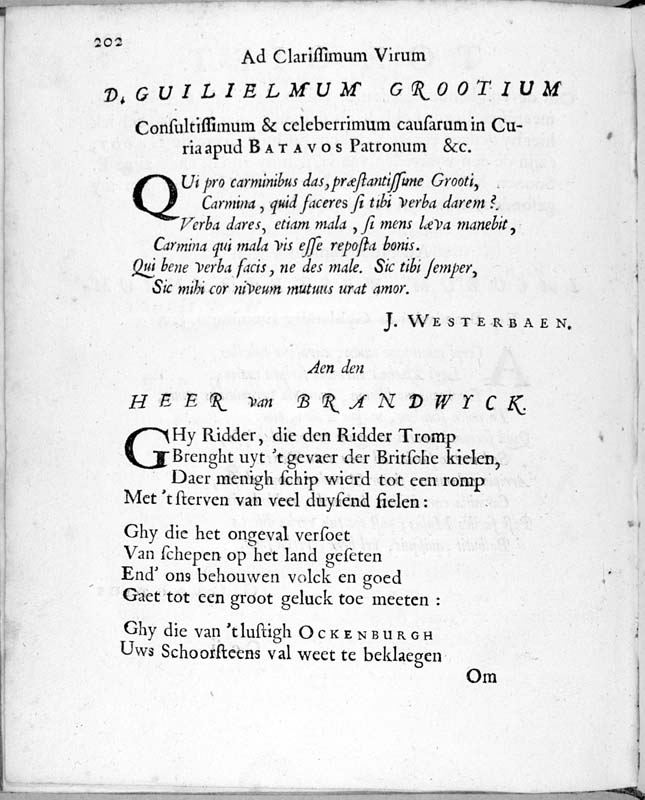 202
Ad Clarissimum Virum
D. GUILIELMUM GROOTIUM
Consultissimum & celeberrimum causarum in Cu-
ria apud BATAVOS Patronum &c.
QUi pro carminibus das, præstantissime Grooti,
Carmina, quid faceres si tibi verba darem?
Verba dares, etiam mala, si mens læva manebit,
Carmina qui mala vis esse reposta bonis.
Qui bene verba facis, ne des male. Sic tibi semper,
Sic mihi cor niveum mutuus urat amor.
J. WESTERBAEN.
Aen den
HEER van BRANDWYCK.
GHy Ridder, die den Ridder Tromp
Brenght uyt 't gevaer der Britsche kielen,
Daer menigh schip wierd tot een romp
Met 't sterven van veel duysend sielen:
Ghy die het ongeval versoet
Van schepen op het land geseten
End' ons behouwen volck en goed
Gaet tot een groot geluck toe meeten:
Ghy die van 't lustigh OCKENBURGH
Uws Schoorsteens val weet te beklaegen
Om